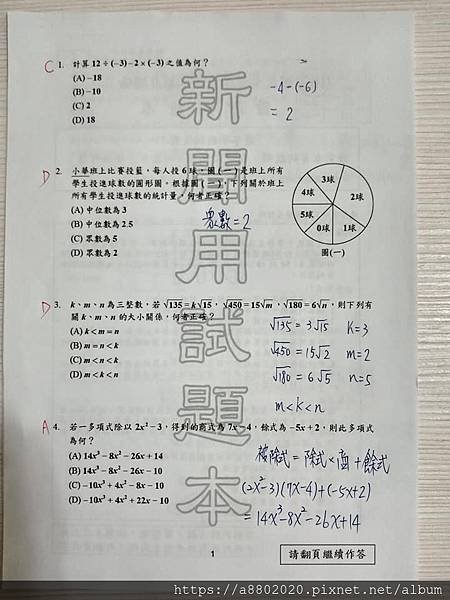 C 1. 計算 12÷(−3)−2×(−3) 之值為何？
(A) −18
(B) −10
(C) 2
(D) 18
-4-(-6)
= 2
D 2. 小華班上比賽投籃，每人投 6 球，圖(一)是班上所有
學生投進球數的圓形圖。根據圖(一)，下列關於班上
所有學生投進球數的統計量，何者正確？
(A) 中位數為 3
(B) 中位數為 2.5
(C) 眾數為 5
(D) 眾數為 2
眾數=2
3球
4球
2球
5球
0球
1球
圖(一)
D 3. k、m、n 為三整數，若 √135=k√15，√450=15√m，√180=6√n，則下列有
關 k、m、n 的大小關係，何者正確？
(A) k<m=n
(B) m=n<k
(C) m<n<k
(D) m<k<n
√135 = 3√15 k=3
√450 = 15√2 m=2
√180 = 6√5 n=5
m<k<n
A 4. 若一多項式除以 2x²−3，得到的商式為 7x−4，餘式為 −5x+2，則此多項式
為何？
(A) 14x³−8x²−26x+14
(B) 14x³−8x²−26x−10
(C) −10x³+4x²−8x−10
(D) −10x³+4x²+22x−10
被除式 = 除式×商+餘式
(2x²-3)(7x-4)+(-5x+2)
= 14x³-8x²-26x+14
新開用試題本
1
請翻頁繼續作答
https://a8802020.pixnet.net/album